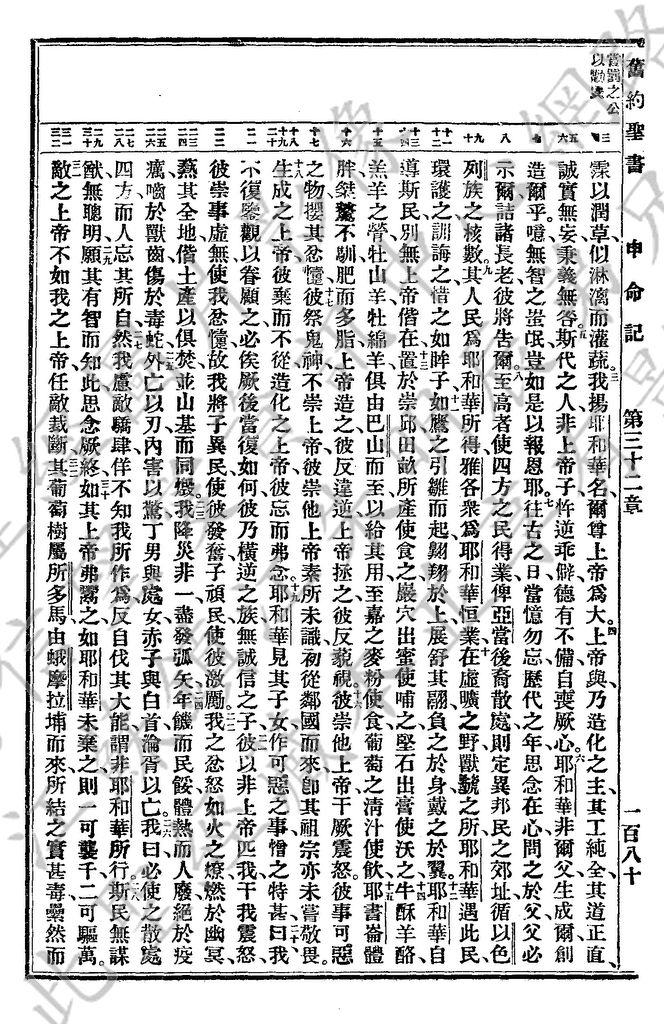 舊約聖書 申命記 第三十二章 一百八十
霖以潤草似淋漓而灌蔬我揚耶和華名爾尊上帝爲大上帝與乃造化之主其工純全其道正直
誠實無妄秉義無咎斯代之人非上帝子忤逆乖僻德有不備自喪厥心耶和華非爾父生成爾創
造爾乎噫無智之蚩氓豈如是以報恩耶往古之日當憶勿忘歷代之年思念在心問之於父父必
示爾詰諸長老彼將告爾至高者使四方之民得業俾亞當後裔散處則定異邦民之郊址循以色
列族之核數其人民爲耶和華所得雅各衆爲耶和華恒業在虛曠之野獸號之所耶和華遇此民
環護之訓誨之惜之如眸子如鷹之引雛而起翱翔於上展舒其翮負之於身戴之於翼耶和華自
導斯民別無上帝偕在置於崇邱田畝所產使食之巖穴出蜜使哺之堅石出膏使沃之牛酥羊酪
羔羊之膋牡山羊牡綿羊俱由巴山而至以給其用至嘉之麥粉使食葡萄之淸汁使飲耶書崙體
胖桀驁不馴肥而多脂上帝造之彼反違逆上帝拯之彼反藐視彼崇他上帝干厥震怒彼事可惡
之物攖其忿懥彼祭鬼神不崇上帝彼崇他上帝素所未識初從鄰國而來卽其祖宗亦未嘗敬畏
生成之上帝彼棄而不從造化之上帝彼忘而弗念耶和華見其子女作可惡之事憎之特甚曰我
不復鑒觀以眷顧之必俟厥後當復如何彼乃橫逆之族無誠信之子彼以非上帝匹我干我震怒
彼崇事虛無使我忿懥故我將子異民使彼發奮子頑民使彼激勵我之忿怒如火之燎燃於幽冥
爇其全地偕土產以俱焚並山基而同燬我降災非一盡發弧矢年饑而民餒體熱而人廢絕於疫
癘噴於獸齒傷於毒蛇外亡以刃內害以驚丁男與處女赤子與白首淪胥以亡我曰必使之散處
四方而人忘其所自然我慮敵驕肆佯不知我所作爲反自伐其大能謂非耶和華所行斯民無謀
猷無聰明願其有智而知此思念厥終如其上帝弗鬻之如耶和華未棄之則一可襲千二可驅萬
敵之上帝不如我之上帝任敵裁斷其葡萄樹屬所多馬由蛾摩拉埔而來所結之實甚毒纍然而